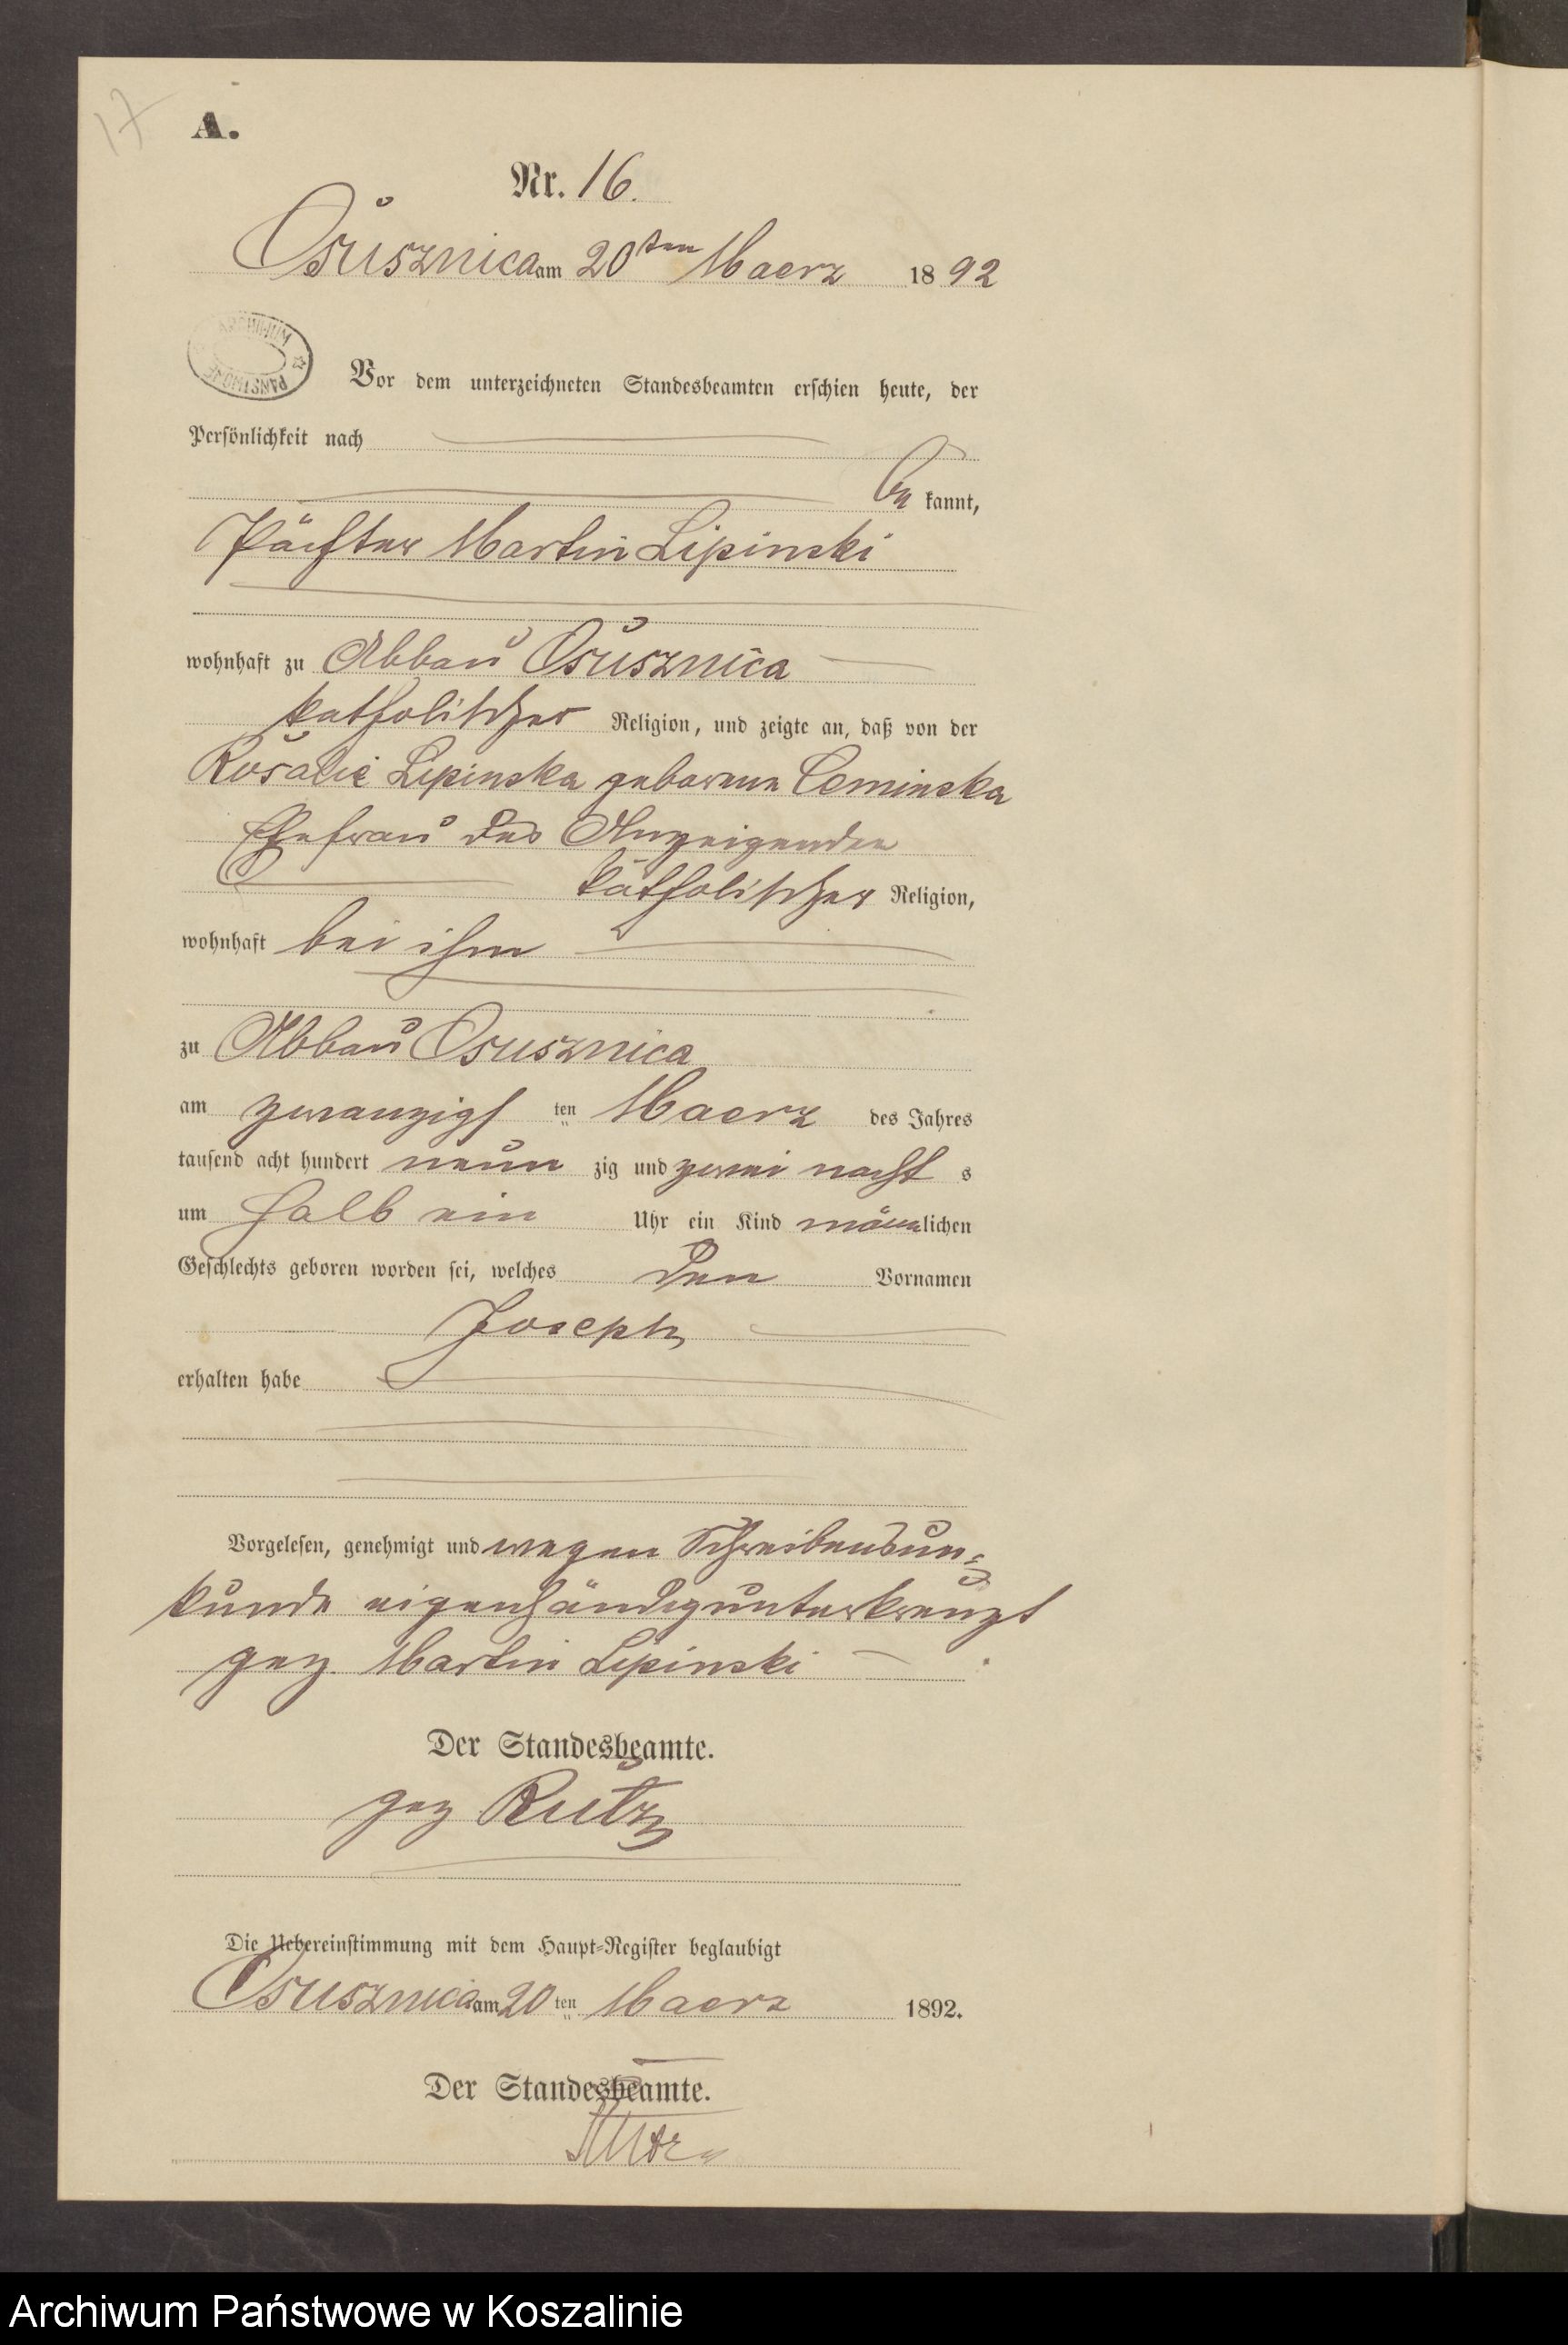 17
A.
Nr. 16.
Osusznica am 20ten Maerz 1892
ARCHIWUM PAŃSTWOWE
Vor dem unterzeichneten Standesbeamten erschien heute, der
Persönlichkeit nach
be kannt,
Pächter Martin Lipinski
wohnhaft zu Abbau Osusznica
katholischer Religion, und zeigte an, daß von der
Rosalie Lipinska geborene Ceminska
Ehefrau des Anzeigenden
katholischer Religion,
wohnhaft bei ihm
zu Abbau Osusznica
am zwanzigsten Maerz des Jahres
tausend acht hundert neun zig und zwei nacht s
um halb ein Uhr ein Kind männlichen
Geschlechts geboren worden sei, welches den Vornamen
Joseph
erhalten habe
Vorgelesen, genehmigt und wegen Schreibensun=
kunde eigenhändig unterkreuzt
gez. Martin Lipinski
Der Standesbeamte.
gez Rutz
Die Uebereinstimmung mit dem Haupt-Register beglaubigt
Osusznica am 20 ten Maerz 1892.
Der Standesbeamte.
Archiwum Państwowe w Koszalinie